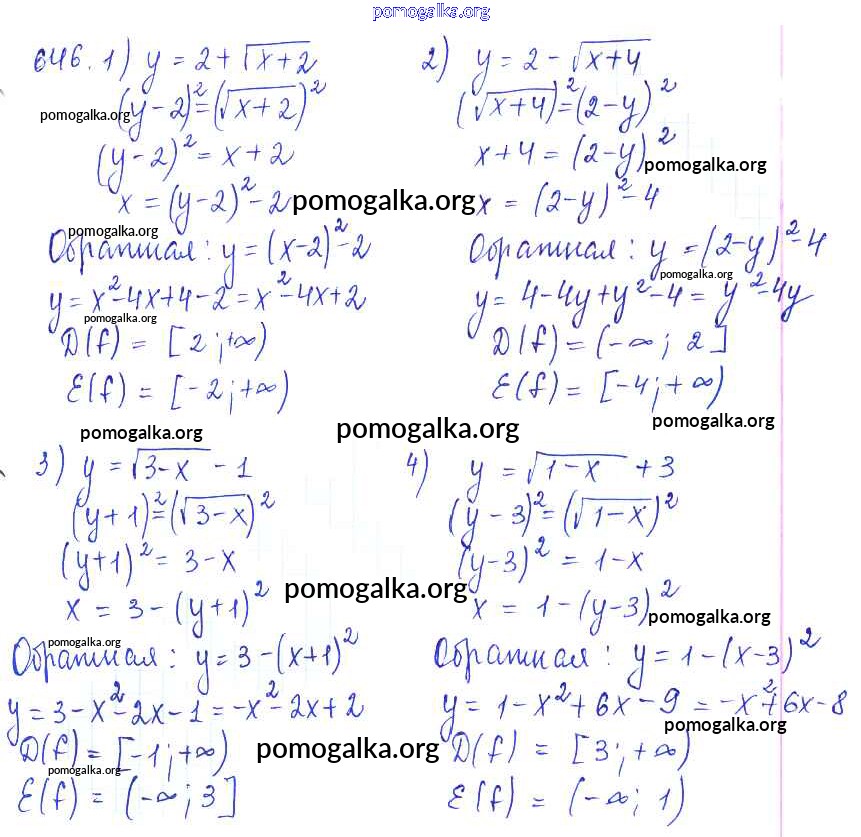 pomogalka.org
646. 1) y = 2 + √(x+2)
(y-2)² = (√(x+2))²
pomogalka.org
(y-2)² = x+2
x = (y-2)² - 2
pomogalka.org
Обратная: y = (x-2)² - 2
pomogalka.org
y = x² - 4x + 4 - 2 = x² - 4x + 2
pomogalka.org
D(f) = [2; +∞)
E(f) = [-2; +∞)
pomogalka.org
2) y = 2 - √(x+4)
(√(x+4))² = (2-y)²
x+4 = (2-y)²
pomogalka.org
x = (2-y)² - 4
Обратная: y = (2-y)² - 4
pomogalka.org
y = 4 - 4y + y² - 4 = y² - 4y
D(f) = (-∞; 2]
E(f) = [-4; +∞)
pomogalka.org
pomogalka.org
3) y = √(3-x) - 1
(y+1)² = (√(3-x))²
(y+1)² = 3-x
pomogalka.org
x = 3 - (y+1)²
pomogalka.org
Обратная: y = 3 - (x+1)²
y = 3 - x² - 2x - 1 = -x² - 2x + 2
D(f) = [-1; +∞)
pomogalka.org
pomogalka.org
E(f) = (-∞; 3]
4) y = √(1-x) + 3
(y-3)² = (√(1-x))²
(y-3)² = 1-x
x = 1 - (y-3)²
pomogalka.org
Обратная: y = 1 - (x-3)²
y = 1 - x² + 6x - 9 = -x² + 6x - 8
pomogalka.org
D(f) = [3; +∞)
E(f) = (-∞; 1)